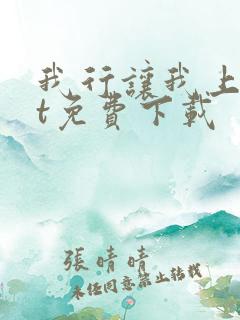 我行讓我上
t免費下載
張晴晴
未經同意禁止轉載